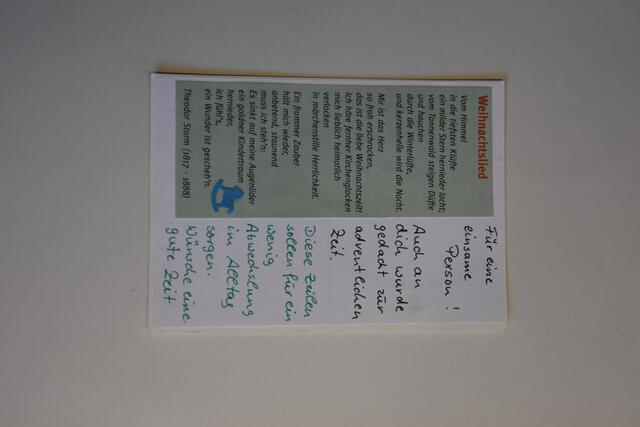 Weihnachtslied
Vom Himmel
in die tiefsten Klüfte
ein milder Stern hernieder lacht;
vom Tannenwald steigen Düfte
und hauchen
durch die Winterlüfte,
und kerzenhelle wird die Nacht.
Mir ist das Herz
so froh erschrocken,
das ist die liebe Weihnachtszeit!
Ich höre fernher Kirchenglocken
mich lieblich heimatlich
verlocken
in märchenstille Herrlichkeit.
Ein frommer Zauber
hält mich wieder,
anbetend, staunend
muss ich steh'n:
Es sinkt auf meine Augenlider
ein goldner Kindertraum
hernieder,
ich fühl's,
ein Wunder ist gescheh'n.
Theodor Storm (1817 - 1888)
Für eine
einsame
Person!
Auch an
dich wurde
gedacht zur
adventlichen
Zeit.
Diese Zeilen
sollen für ein
wenig
Abwechslung
im Alltag
sorgen.
Wünsche eine
gute Zeit